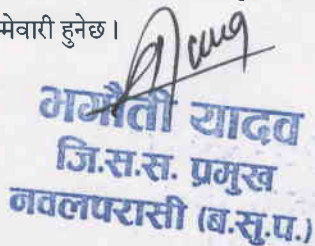 मेवारी हुनेछ।
भगौती यादव
जि.स.स. प्रमुख
नवलपरासी (ब.सु.प.)